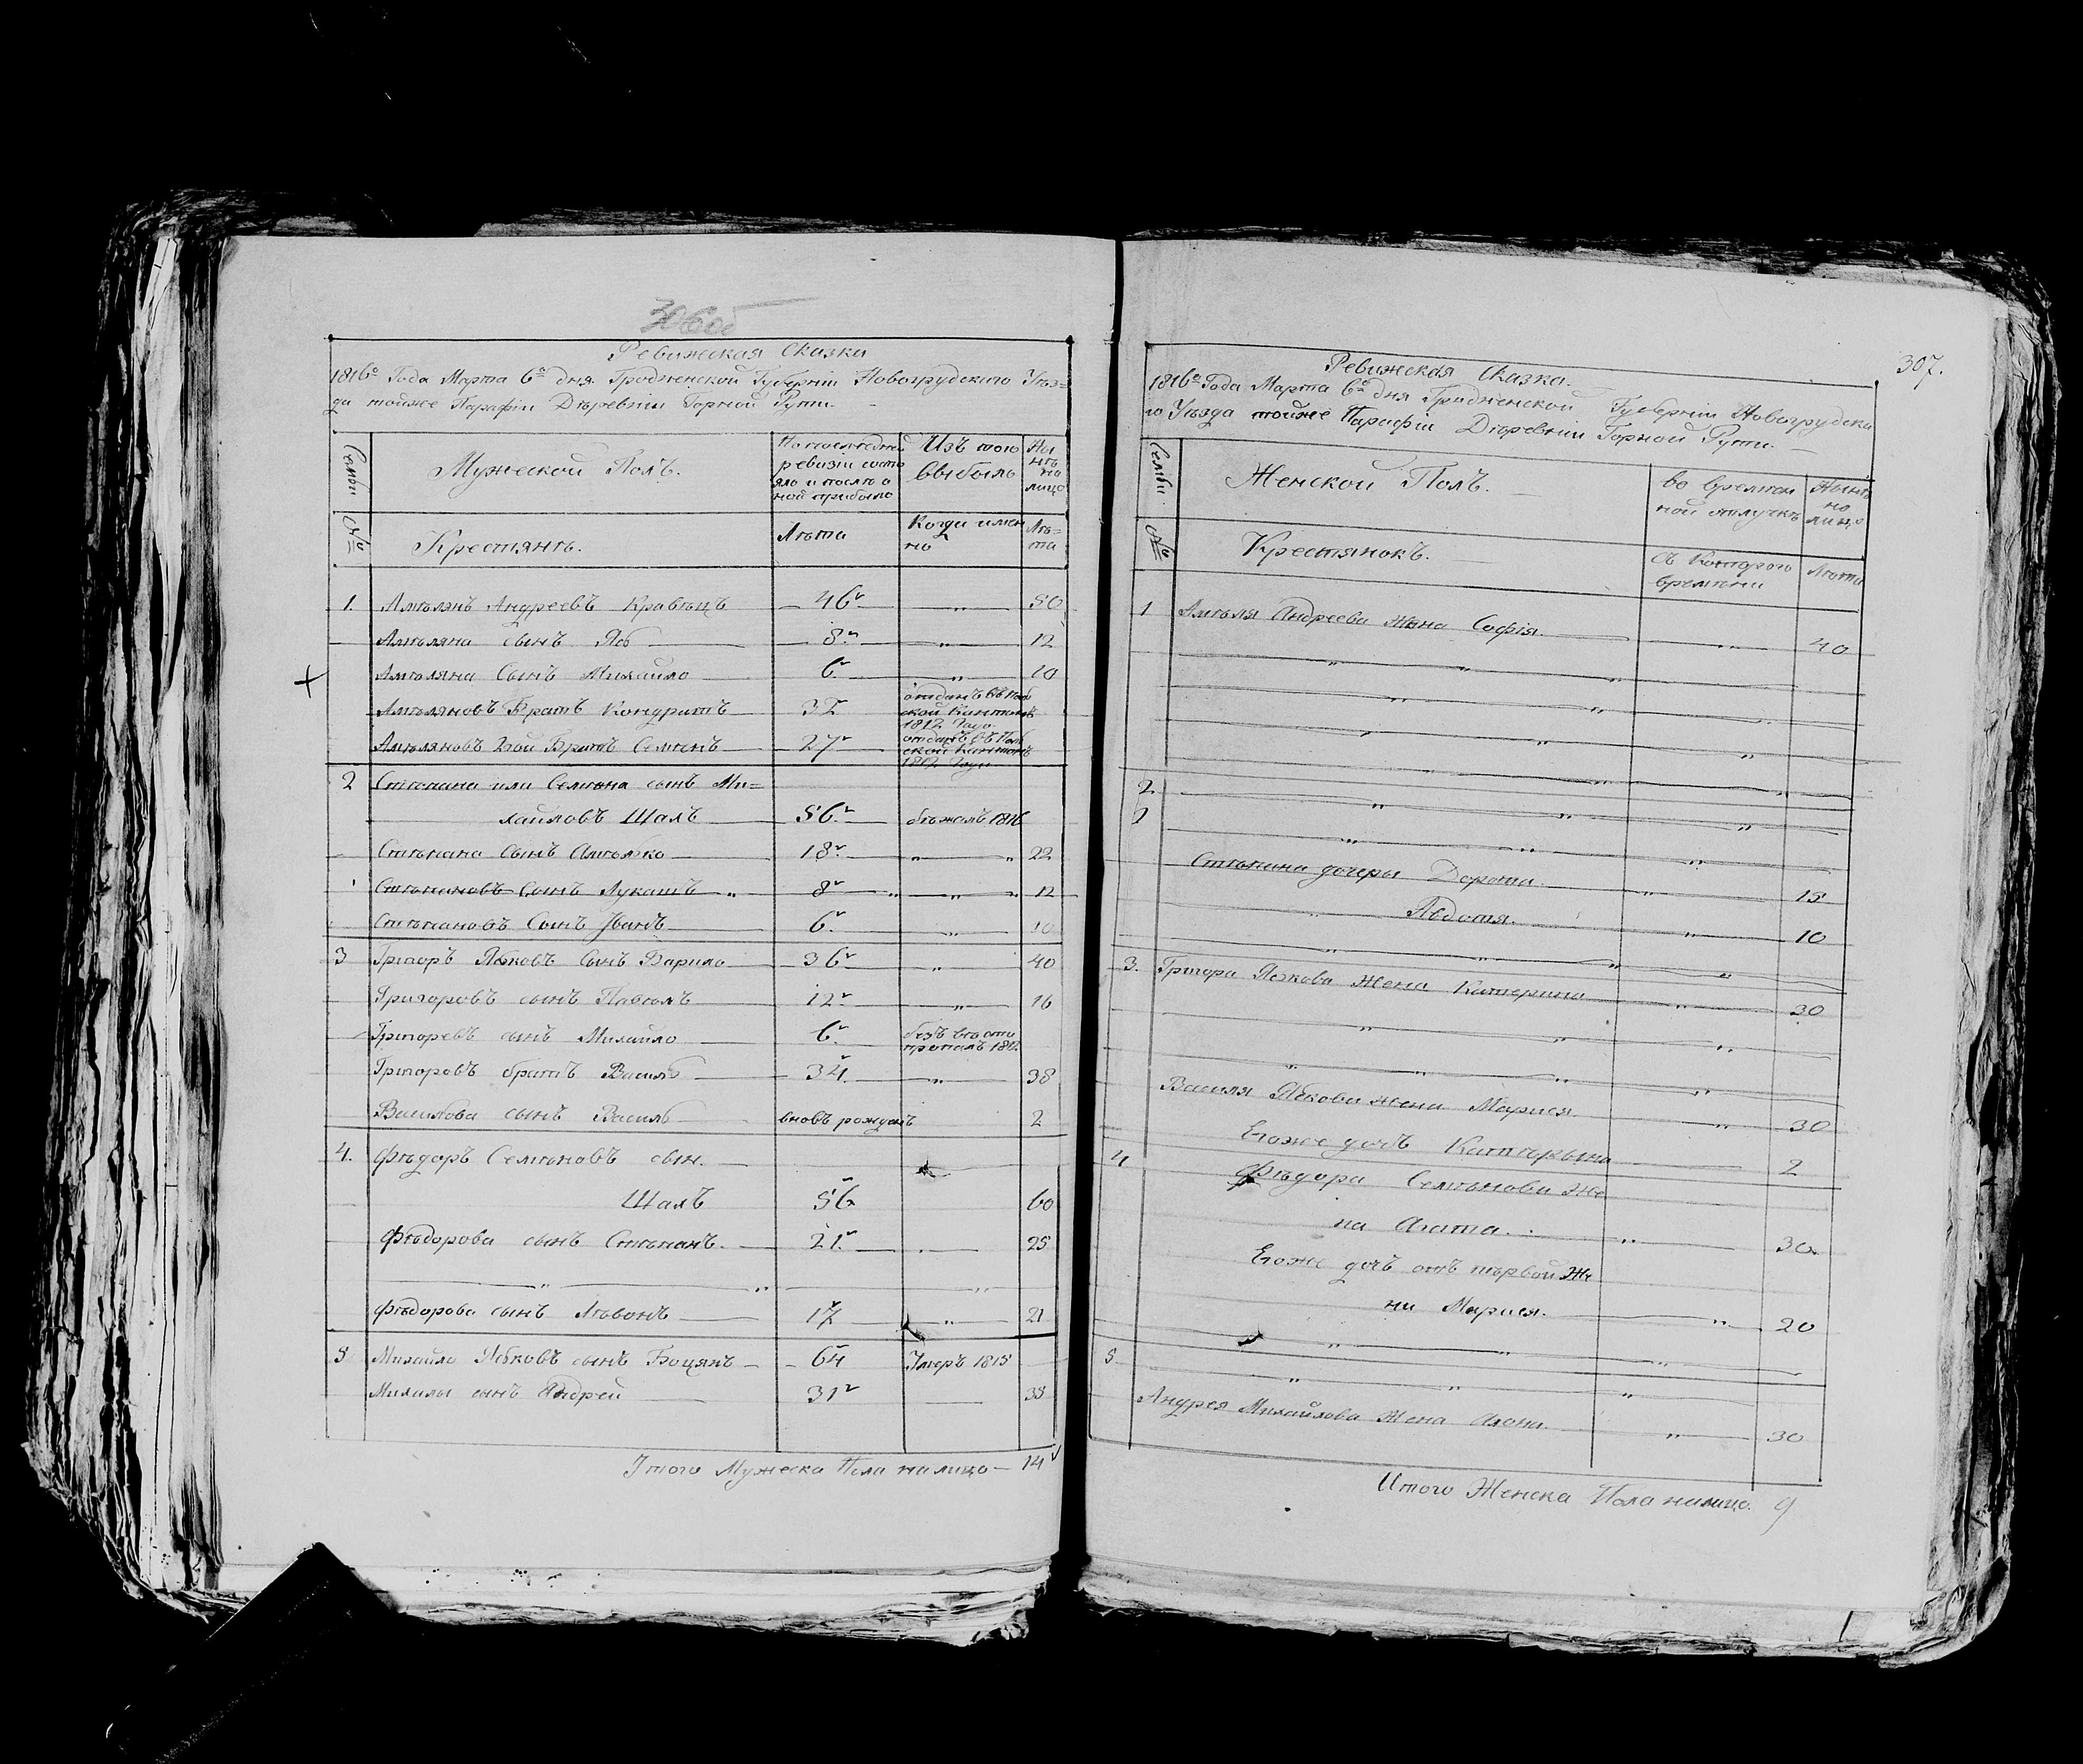 306об
Ревижская Сказка
1816го Года Марта 6го дня Гродненской Губерніи Новогрудского Уѣз=
да тойже Парафіи Дѣревніи Горной Руты
Семьи
Мужеской Полъ.
По последней
ревизіи состо
яло и послѣ о
ной прибыло
Изъ того
выбыло
Ны
нѣ
на
лицо
№
Крестянѣ.
Лѣта
Когда имен
но
Лѣ=
та
1. Амѣлянъ Андреевъ Кравѣцъ 46 „ 50
Амѣляна сынъ 8 „ 12
Амѣляна Сынъ Михайло 6 „ 10
Амѣляновъ Братъ Кондратъ 32 отданъ въ
1812 Года
Амѣляновъ 2ой Братъ Семѣнъ 27 отданъ въ
1812 Года
2 Стѣпана или Семѣона сынъ Ми=
хайловъ Шалъ 56 бѣжалъ 1816
Стѣпана Сынъ Амѣлко 18 „ „ 22
Стѣпановъ Сынъ Лукашъ „ 8 „ „ „ 12
Стѣпановъ Сынъ Іванъ 6 „ 10
3 Грігоръ Яковъ Сынъ Варило 36 „ 40
Григоровъ сынъ Павѣлъ 12 „ 16
Грігоревъ сынъ Михайло 6 безъ вѣсти
пропалъ 1812
Грігоровъ братъ Василь 34 „ 38
Василёва сынъ Василь вновь рожденъ 2
4. Фѣдоръ Семѣновъ сын.
Шалъ 56 60
Фѣдорова сынъ Стѣпанъ. 21 25
„ „ „
Фѣдорова сынъ Лѣвонъ 17 „ 21
5 Михайло Яковъ сынъ Боцянъ 64 Умеръ 1815
Михалы сынъ Андрей 31 35
Ітого Мужеска Пола налицо 14
307.
Ревижская Сказка.
1816го Года Марта 6го дня Гродненской Губерніи Новогрудска
го Уѣзда тойже Парафіи Дѣревніи Горной Руты
Семьи
Женской Полъ.
во времен
ной отлучкѣ
Нынѣ
на
лицо
№
Крестянокъ.
съ Которого
времѣни
Лѣта
1 Амѣлля Андреева Жена Софія. „ 40
2.
Стѣпана дочеры Дорота. „ 15
Авдотя. „ 10
3. Грігора Якова Жена Катерина „ 30
Василя Якова жена Марыся „ 30
Егоже дочъ Катѣрына 2
4 Фѣдора Семѣнова Же
на Агата. „ 30
Егоже дочъ отъ пѣрвой Же
ны Марыся. „ 20
5
Андрея Михайлова Жена Алона. „ 30
Итого Женска Пола налицо. 9